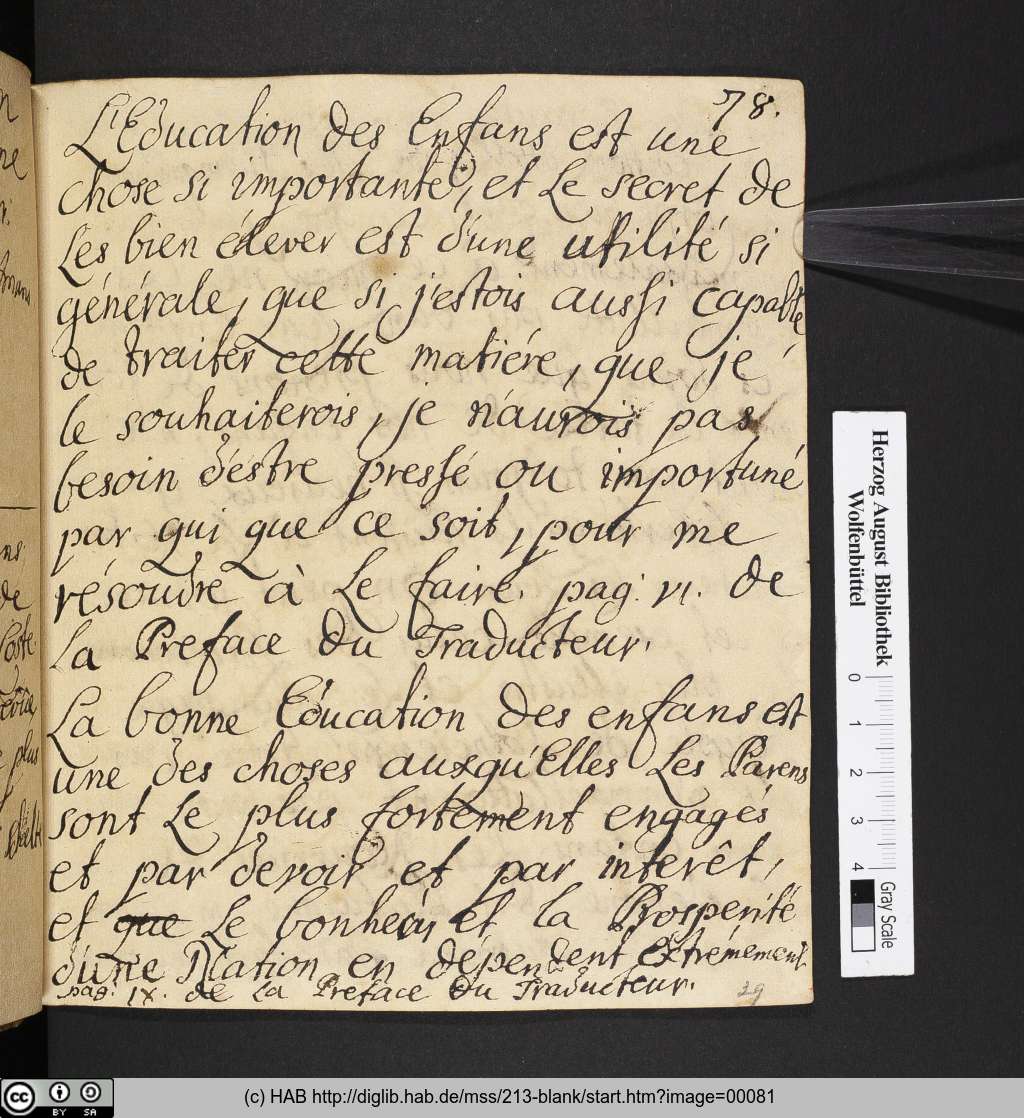 78.
L'Education des Enfans est une
chose si importante, et Le secret de
Les bien élever est d'une utilité si
générale, que si j'estois aussi capable
de traiter cette matiére, que je
le souhaiterois, je n'aurois pas
besoin d'estre pressé ou importuné
par qui que ce soit, pour me
résoudre à Le faire. pag: VI. de
La Preface du Traducteur.
La bonne Education des enfans est
une des choses auxqu'Elles Les Parens
sont Le plus fortement engagés
et par devoir et par interêt,
et que Le bonheur et la Prosperité
d'une Nation en dépendent extrémement
pag. IX. de La Preface du Traducteur.
39
Herzog August Bibliothek
Wolfenbüttel
0 1 2 3 4
Gray Scale
cc BY SA
(c) HAB http://diglib.hab.de/mss/213-blank/start.htm?image=00081